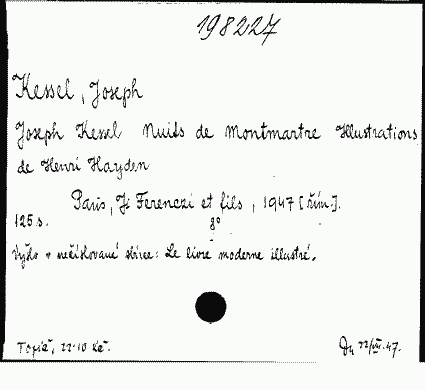 198227
Kessel, Joseph
Joseph Kessel Nuits de Montmartre Illustrations
de Henri Hayden
Paris, J. Ferenczi et fils, 1947 [řím.].
125 s. 8°
Vyšlo v nečíslované sbírce: Le livre moderne illustré.
Topič, 22·10 Kč.
22/VII.47.